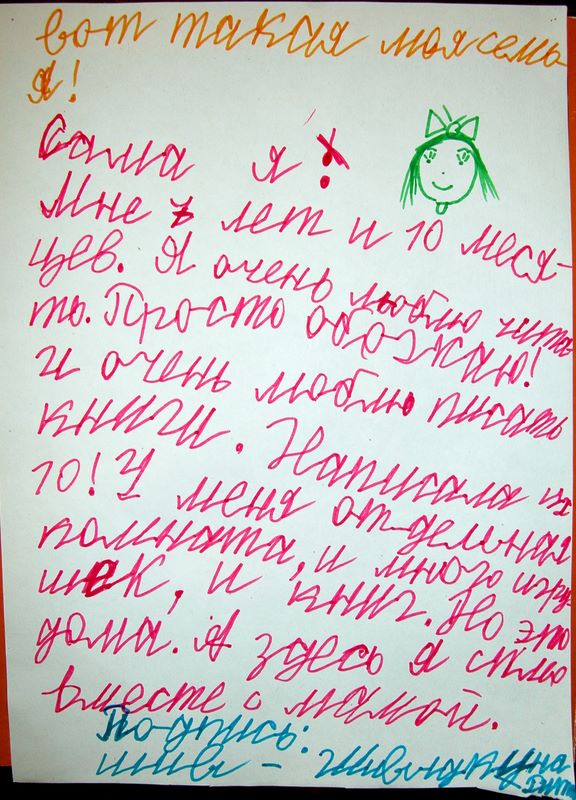 вот такая моя семь-
я!
Сама я
Мне 7 лет и 10 меся-
цев. Я очень люблю чита
ть. Просто обожаю!
И очень люблю писать
книги. Написала их
10! У меня отдельная
комната, и много игру
шек, и книг. Но это
дома. А здесь я сплю
вместе с мамой.
Подпись: